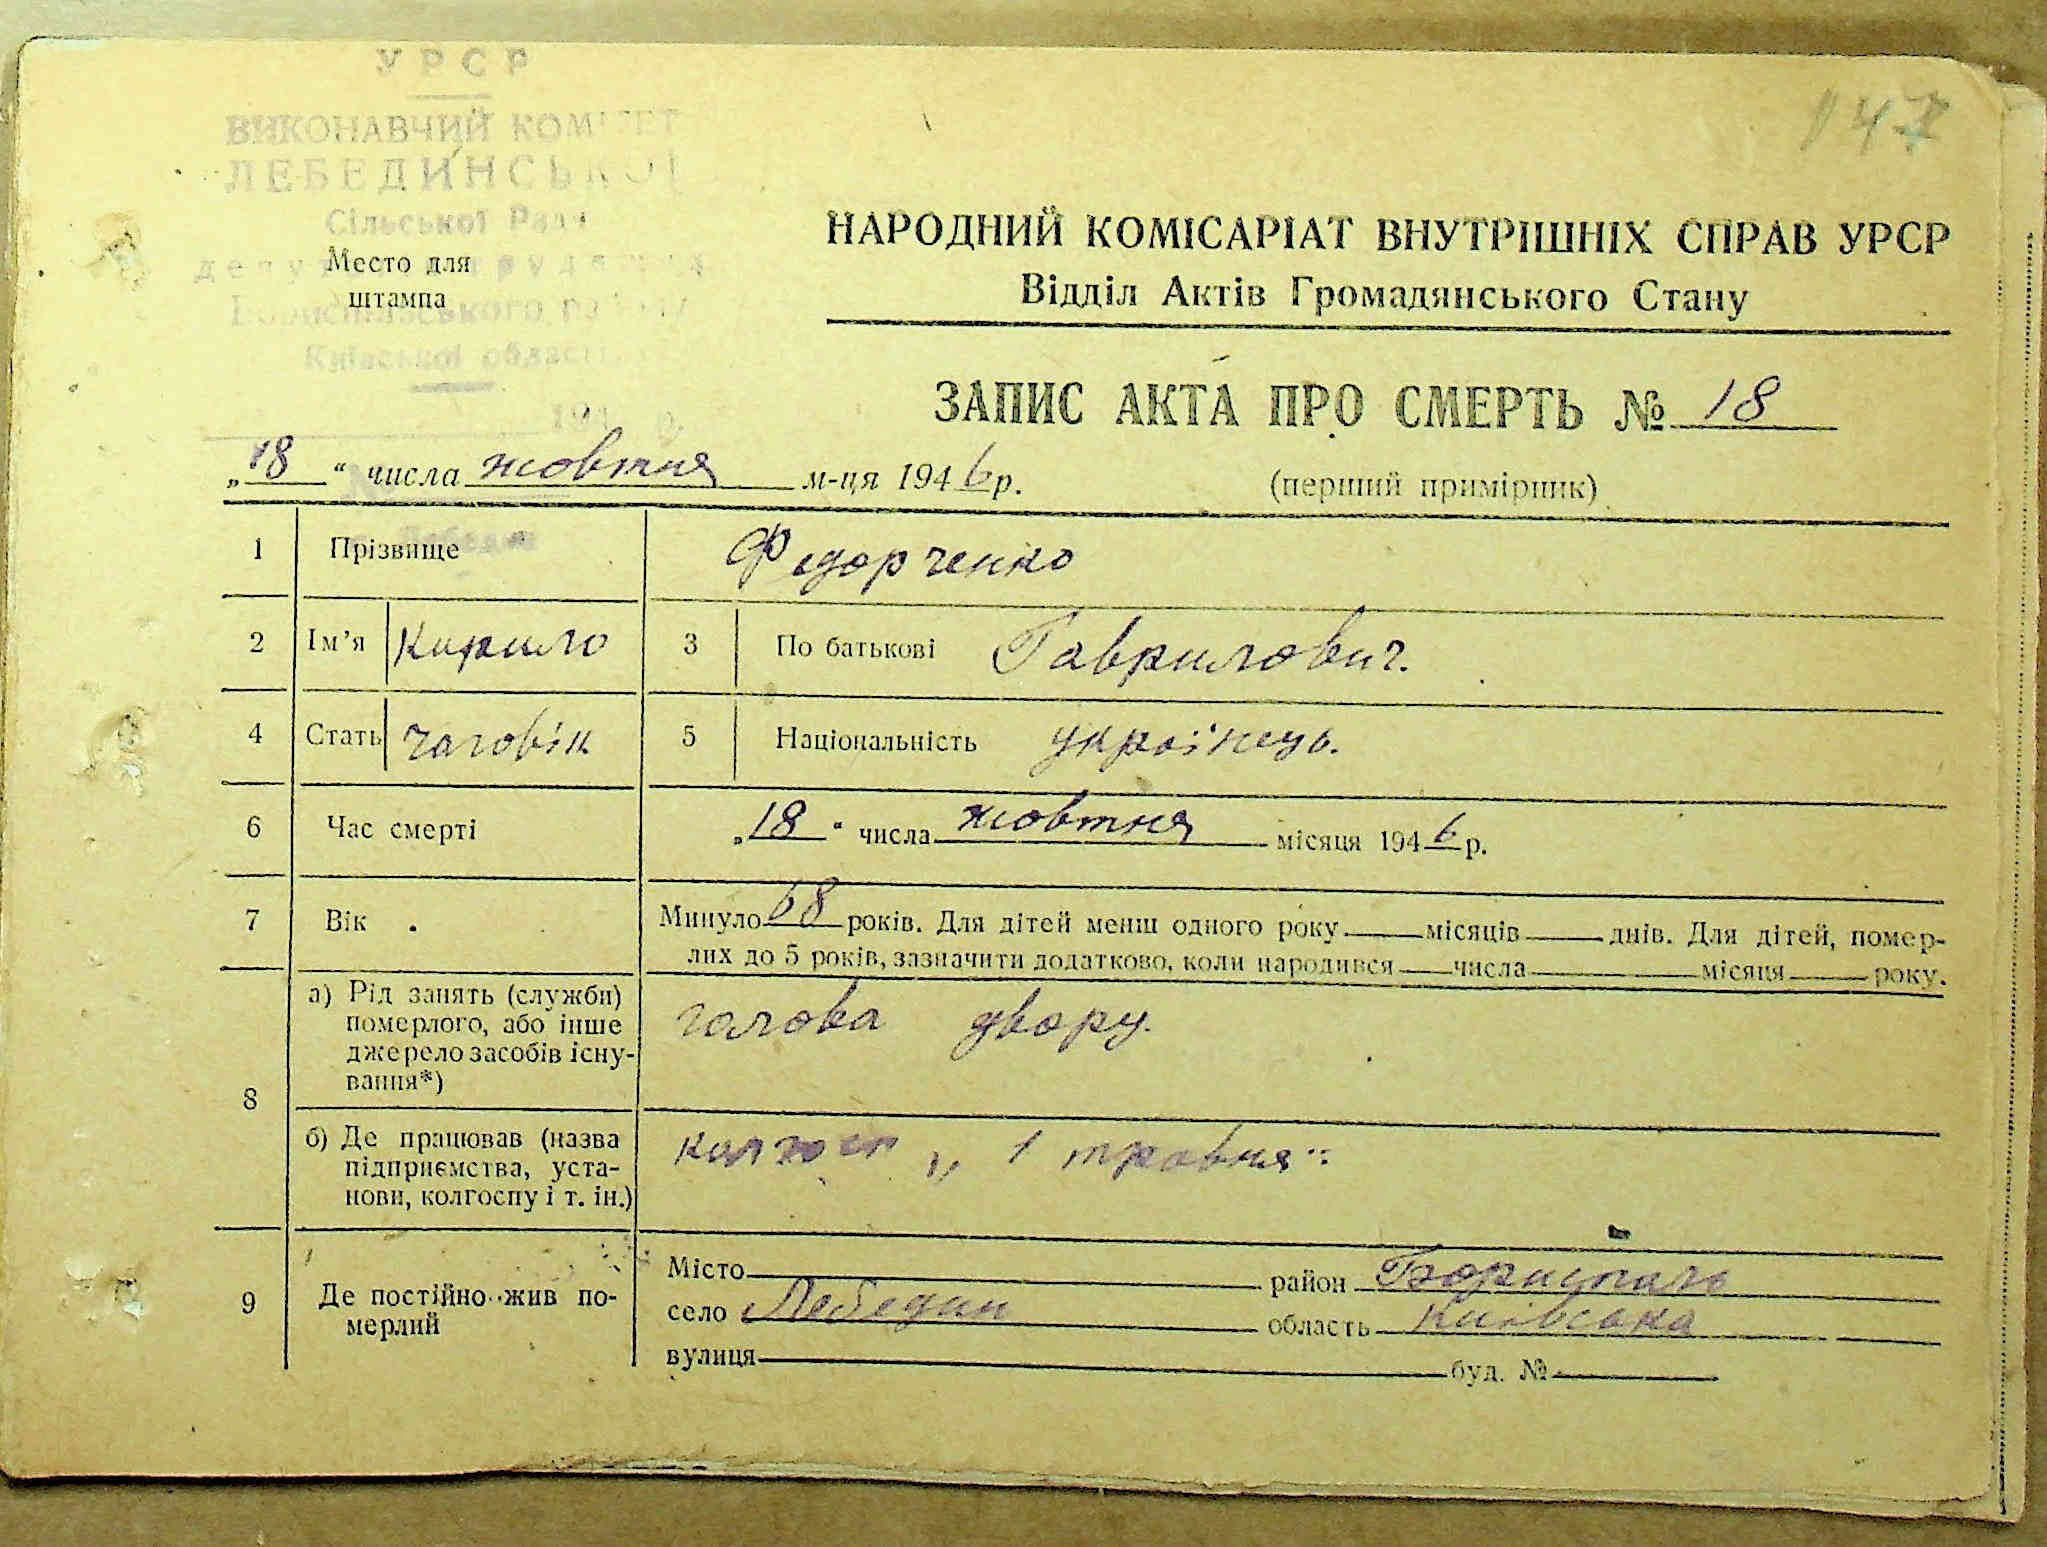 УРСР
ВИКОНАВЧИЙ КОМІТЕТ
ЛЕБЕДИНСЬКОЇ
Сільської Ради
Место для
штампа
Київської області
147
НАРОДНИЙ КОМІСАРІАТ ВНУТРІШНІХ СПРАВ УРСР
Відділ Актів Громадянського Стану
ЗАПИС АКТА ПРО СМЕРТЬ № 18
„18“ числа жовтня м-ця 1946 р.
(перший примірник)
1 Прізвище Федорченко
2 Ім'я Кирило 3 По батькові Гаврилович.
4 Стать чаловік 5 Національність українець.
6 Час смерті „18“ числа жовтня місяця 1946 р.
7 Вік Минуло 68 років. Для дітей менш одного року місяців днів. Для дітей, помер-
лих до 5 років, зазначити додатково, коли народився числа місяця року.
8 а) Рід занять (служби)
померлого, або інше
джерело засобів існу-
вання*)
голова двору.
б) Де працював (назва
підприємства, уста-
нови, колгоспу і т. ін.)
колгосп „1 травня“
9 Де постійно жив по-
мерлий
Місто район Бориспіль
село Лебедин область Київська
вулиця буд. №